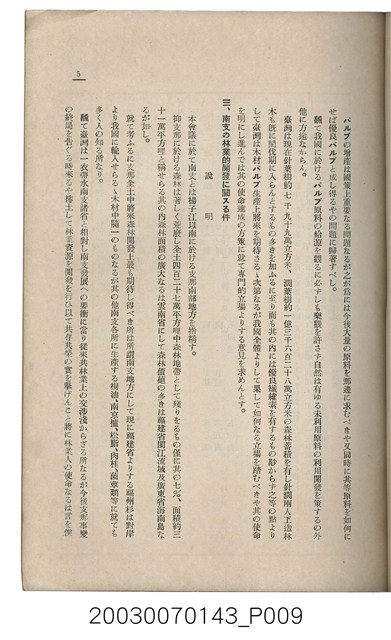 パルプの增產は國策上重要なる問題なるが之が爲には今後大量の原料を那邊に求むべきや又同時に其等原料を如何に
せば優良パルプと成し得るやの問題に歸著すべし。
飜て我國に於けるパルプ原料の給源を觀るに必ずしも樂觀を許さず自然は有ゆる未利用原料の利用開發を策するの外
他に方途なからん。
臺灣は現在針葉樹約七千九十九萬立方米、濶葉樹約一億三千六百二十八萬立方米の森林蓄積を有し針濶兩人工造林
木も旣に間伐期に入らんとするもの多きを加ふるに至り而も其の內には優良纖維素を有するもの尠からず之等の點より
して臺灣は木材パルプ生產上將來を期待さるゝ次第なるが我國全體よりして果して如何なる立場を踏むべきや其の使命
を明にし進んでは其の使命達成の方策に就て專門的立場よりする意見を求めんとす。
三、南支の林業的開發に關する件
說明
本會議に於て南支とは揚子江以南に於ける支那南部地方を指稱す。
抑支那に於ける森林は著しく荒廢し全土四百二十七萬平方粁中森林地帶として殘りをるもの僅に其の七%、面積約三
十一萬平方粁と稱せらる其の內森林面積の廣大なるは雲南省にして森林價値の多きは福建省閩江流域及廣東省海南島な
るが如し。
就て考ふるに支那全土中將來森林開發上最も期待し得べき所は所謂南支地方にして現に福建省よりする福州杉は對岸
より我國に輸入せらるゝ木材中隨一のものなるが其の他南支各所に生產する桐油、南京櫨、松脂、肉桂、菌蕈類等に就ても
多く人の知る所なり。
飜て臺灣は一衣帶水南支諸省と相對し南支發展への要衝に當り從來共林業上の交涉淺からざる所なるが今後支那事變
の終局を吿ぐる時來るや捲土して林業資源を開發を行ひ以て共存共榮の實を擧げんこと將に林業人の使命なるは言を俟
5
20030070143_P009